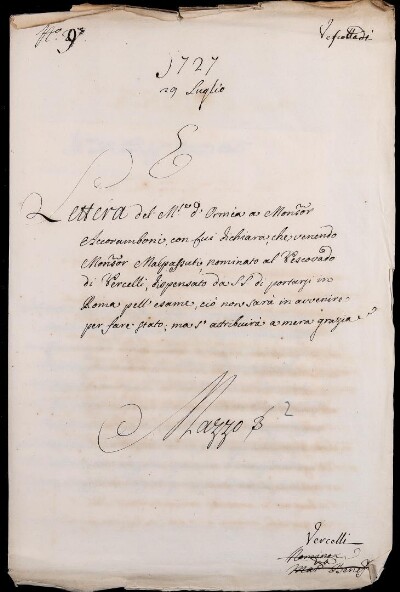 N.° 9
Vescovadi
1727
29 Luglio
E
Lettera del M.se d' Ormea a Monsor
Accoramboni, con cui dichiara, che venendo
Monsor Malpassuto nominato al Vescovado
di Vercelli, dispensato da S.S. di portarsi in
Roma pell' esame, ciò non sarà in avvenire
per fare stato, ma s' attribuirà a mera grazia
Mazzo 2
Vercelli